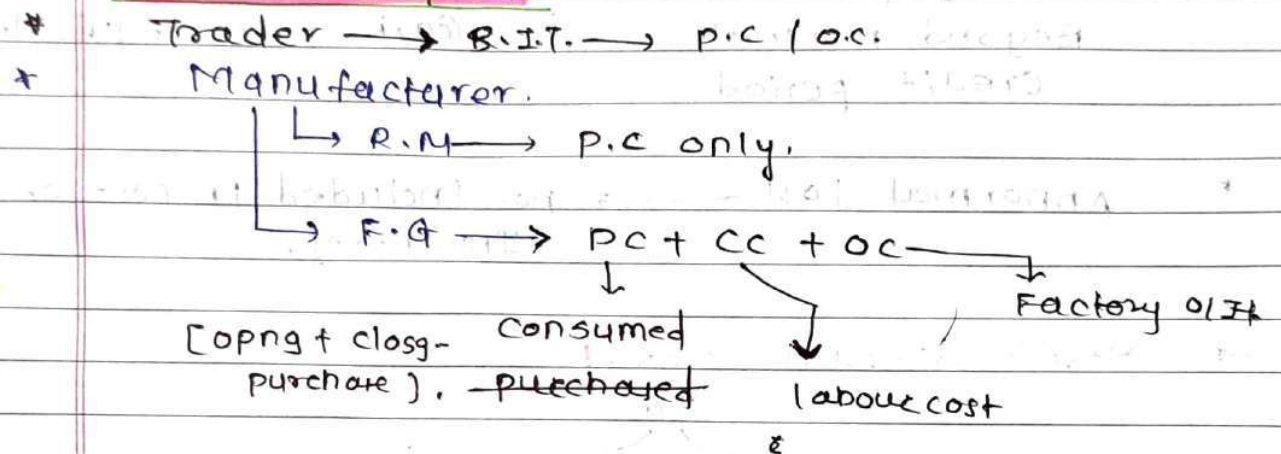 * Trader → B.I.T. → P.C. / O.C.
* Manufacturer.
↳ R.M → P.C only.
↳ F.G → PC + CC + OC
↓ Factory O/H
[opng + closg- consumed
purchase]. purchased labour cost